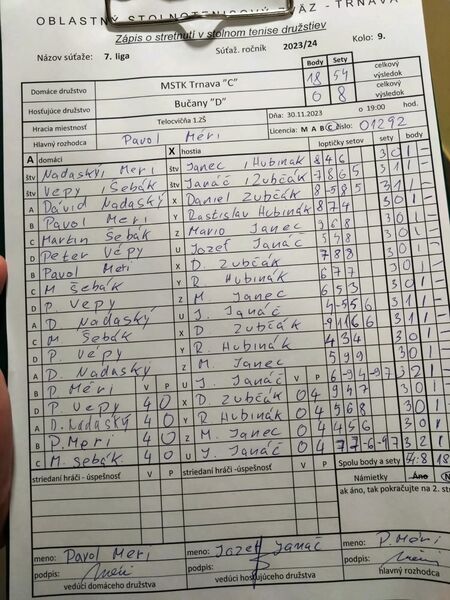 OBLASTNÝ STOLNOTENISOVÝ ZVÄZ - TRNAVA
Zápis o stretnutí v stolnom tenise družstiev
Názov súťaže: 7. liga Súťaž. ročník 2023/24 Kolo: 9.
Body Sety
Domáce družstvo MSTK Trnava "C" 18 54 celkový výsledok
Hosťujúce družstvo Bučany "D" 0 8 celkový výsledok
Hracia miestnosť Telocvičňa 1.ZŠ Dňa: 30.11.2023 o 19:00 hod.
Hlavný rozhodca Pavol Meri Licencia: M A B C číslo: 01292
A domáci X hostia loptičky setov sety body
štv Nadaský, Meri štv Janec, Hubinák 8 4 6 3 0 1 -
štv Vepy, Šebák štv Janáč, Zubčák 7 8 6 5 3 1 1 -
A Dávid Nadaský X Daniel Zubčák 8 -5 8 5 3 1 1 -
B Pavol Meri Y Rastislav Hubinák 8 7 4 3 0 1 -
C Martin Šebák Z Mario Janec 3 6 8 3 0 1 -
D Peter Vepy U Jozef Janáč 5 4 8 3 0 1 -
B Pavol Meri X D. Zubčák 7 8 8 3 0 1 -
C M. Šebák Y R. Hubinák 6 7 7 3 0 1 -
D P. Vepy Z M. Janec 6 5 3 3 0 1 -
A D. Nadaský U J. Janáč 7 -5 5 6 3 1 1 -
C M. Šebák X D. Zubčák -9 11 6 6 3 1 1 -
D P. Vepy Y R. Hubinák 4 3 4 3 0 1 -
A D. Nadaský Z M. Janec 5 9 9 3 0 1 -
B P. Meri V P U J. Janáč V P 6 -9 4 -9 7 3 2 1 -
D P. Vepy 4 0 X D. Zubčák 0 4 9 4 7 3 0 1 -
A D. Nadaský 4 0 Y R. Hubinák 0 4 5 6 8 3 0 1 -
B P. Meri 4 0 Z M. Janec 0 4 4 5 6 3 0 1 -
C M. Šebák 4 0 U J. Janáč 0 4 7 7 -6 -9 7 3 2 1 -
striedaní hráči - úspešnosť V P striedaní hráči -úspešnosť V P Spolu body a sety 54:8 18
Námietky Áno
ak áno, tak pokračujte na 2. str
meno: Pavol Meri meno: Jozef Janáč meno: P. Meri
podpis: podpis: podpis:
vedúci domáceho družstva vedúci hosťujúceho družstva hlavný rozhodca